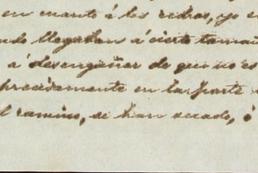 en cuanto á los redros, yo e
ndo llegaban á cierto tamañ
á desengañar de que no es
precisamente en la parte
l camino, se han secado, ó